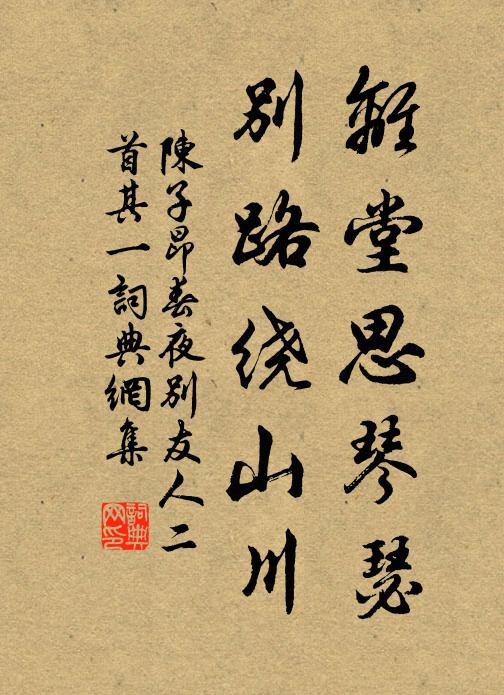 離堂思琴瑟
別路绕山川
陳子昂春夜别友人二
首其一詞典網集
詞典
网印